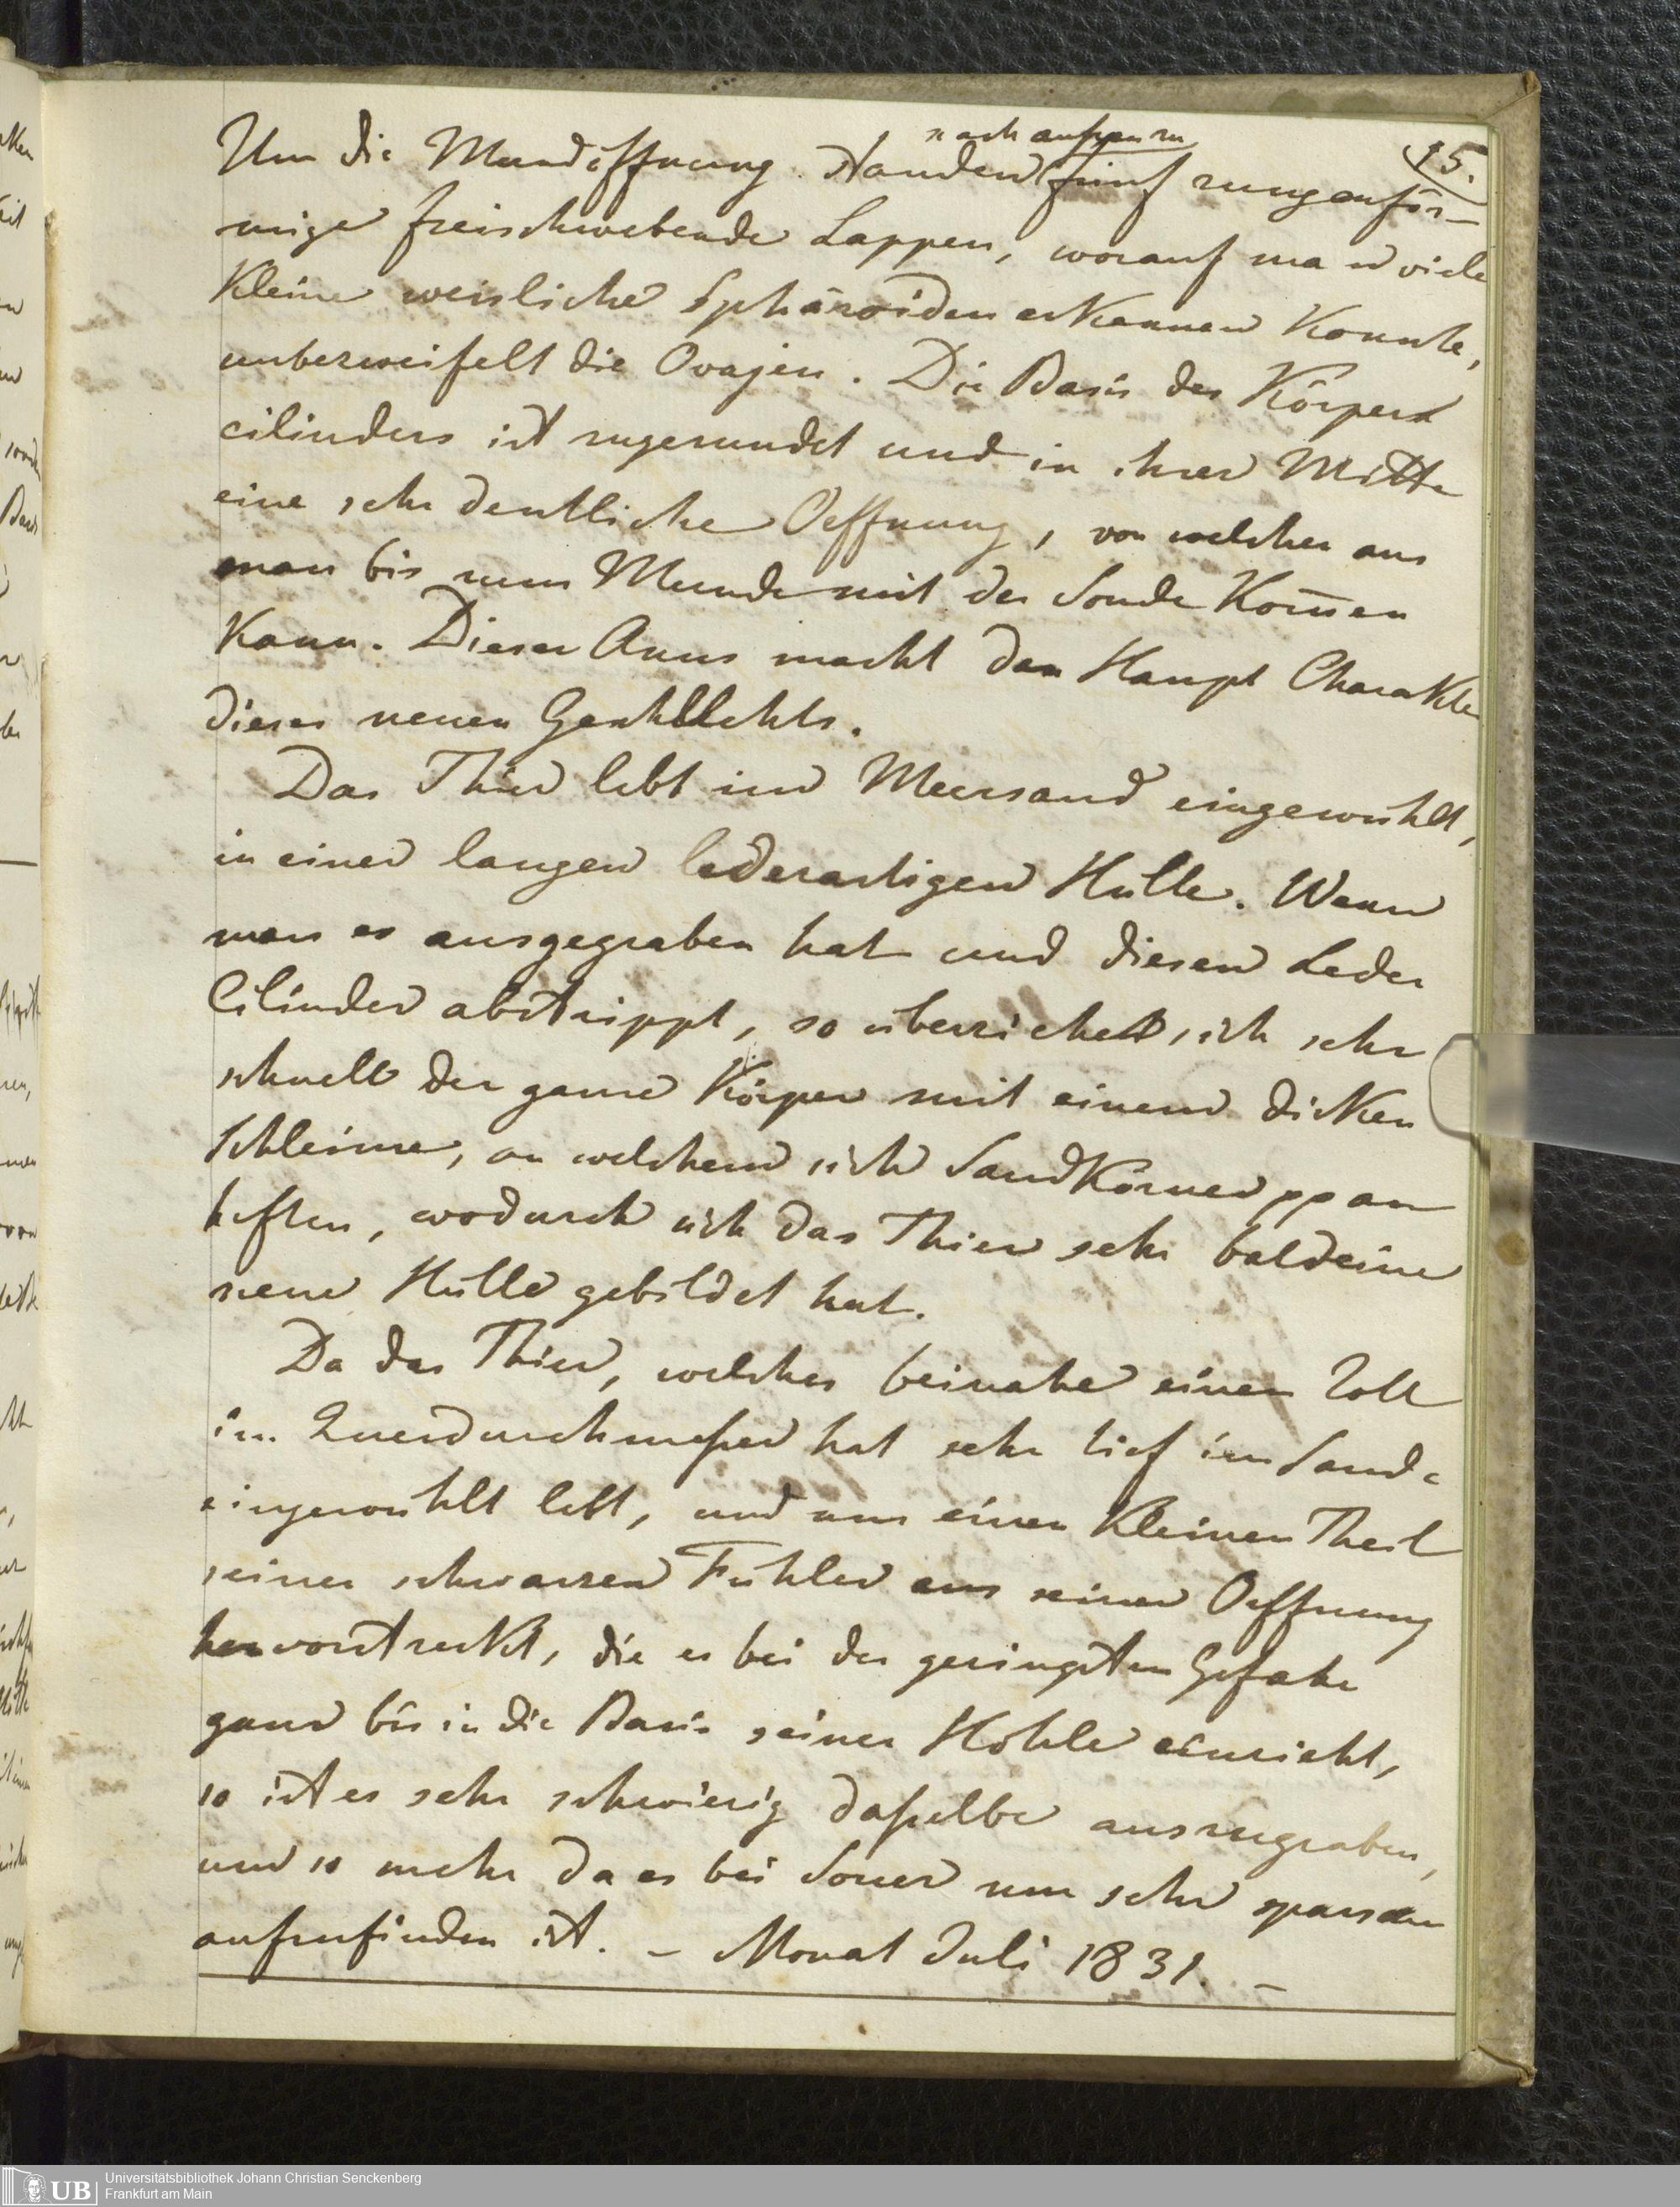 15.
nach aussen zu
Um die Mundöffnung standen fünf zungenför-
mige freischwebende Lappen, worauf man viele
Kleine weisliche Sphäroiden erkennen Konnte,
unbezweifelt die Ovajen. Die Basis des Körpers
cilinders ist zugerundet und in ihrer Mitte
eine sehr deutliche Oeffnung, von welcher aus
man bis zum Munde mit der Sonde Kom̄en
Kann. Dieser Anus macht den Haupt Charakter
dieses neuen Geschlechts.
Das Thier lebt im Meersand eingewühlt,
in einer langen lederartigen Hülle. Wenn
man es ausgegraben hat und diesen Leder
Cilinder abstrippt, so überziehet sich sehr
schnell der ganze Körper mit einem dicken
Schleime, an welchem sich Sandkörner pp an
heften, wodurch sich das Thier sehr bald eine
neue Hülle gebildet hat.
Da das Thier, welches beinahe einen Zoll
im Querdurchmesser hat sehr tief im Sande
eingewühlt lebt, und nur einen Kleinen Theil
seiner schwarzen Fühler aus seiner Oeffnung
hervorstreckt, die es bei der geringsten Gefahr
ganz bis in die Basis seiner Höhle einzieht,
so ist es sehr schwierig dasselbe auszugraben,
um so mehr da es bei Souer nur sehr sparsam
aufzufinden ist. – Monat Juli 1831. –
UB
Universitätsbibliothek Johann Christian Senckenberg
Frankfurt am Main